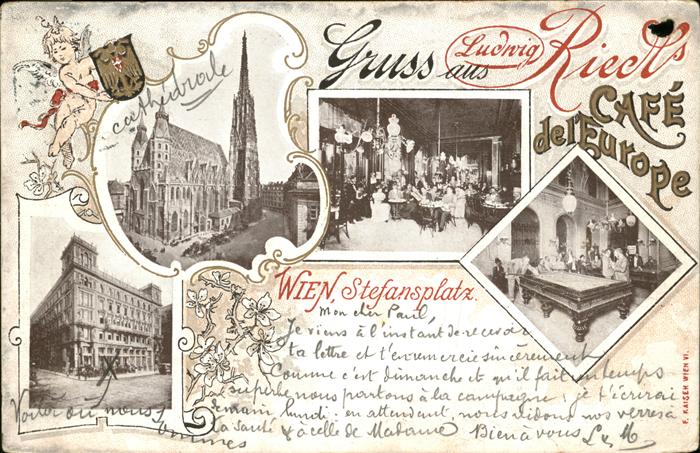 Gruss aus
Ludwig Riedl's
CAFÉ
de l'Europe
cathédrale
WIEN, Stefansplatz.
Mon cher Paul
Je viens à l'instant de recevoir
ta lettre et t'en remercie sincèrement
Comme c'est dimanche et qu'il fait un temps
superbe, nous partons à la campagne ; je t'écrirai
demain lundi : en attendant, nous vidons nos verres à
la santé & à celle de Madame Bien à vous L & M
X
Voilà où nous
sommes
F. KAISER WIEN VI.